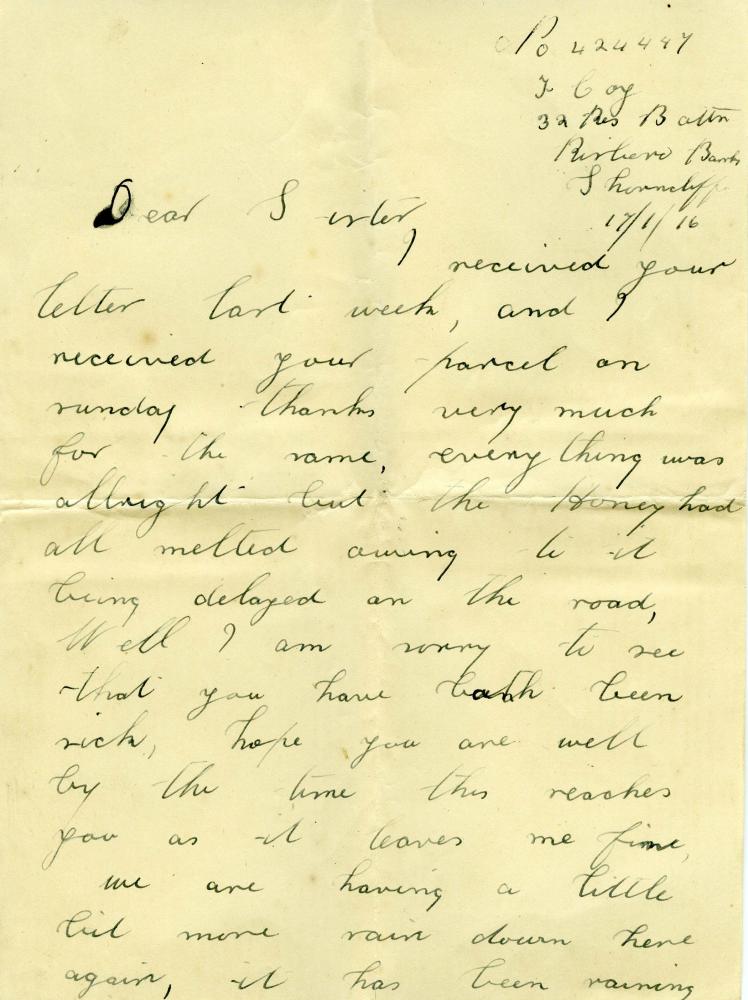 No 424447
F Coy
32 Res Battn
Risboro Barrks
Shorncliffe
17/1/16
Dear Sister,
I received your
letter last week, and I
received your parcel on
sunday thanks very much
for the same, everything was
allright but the Honey had
all melted owing to it
being delayed on the road,
Well I am sorry to see
that you have both been
sick, hope you are well
by the time this reaches
you as it leaves me fine,
we are having a little
bit more rain down here
again, it has been raining